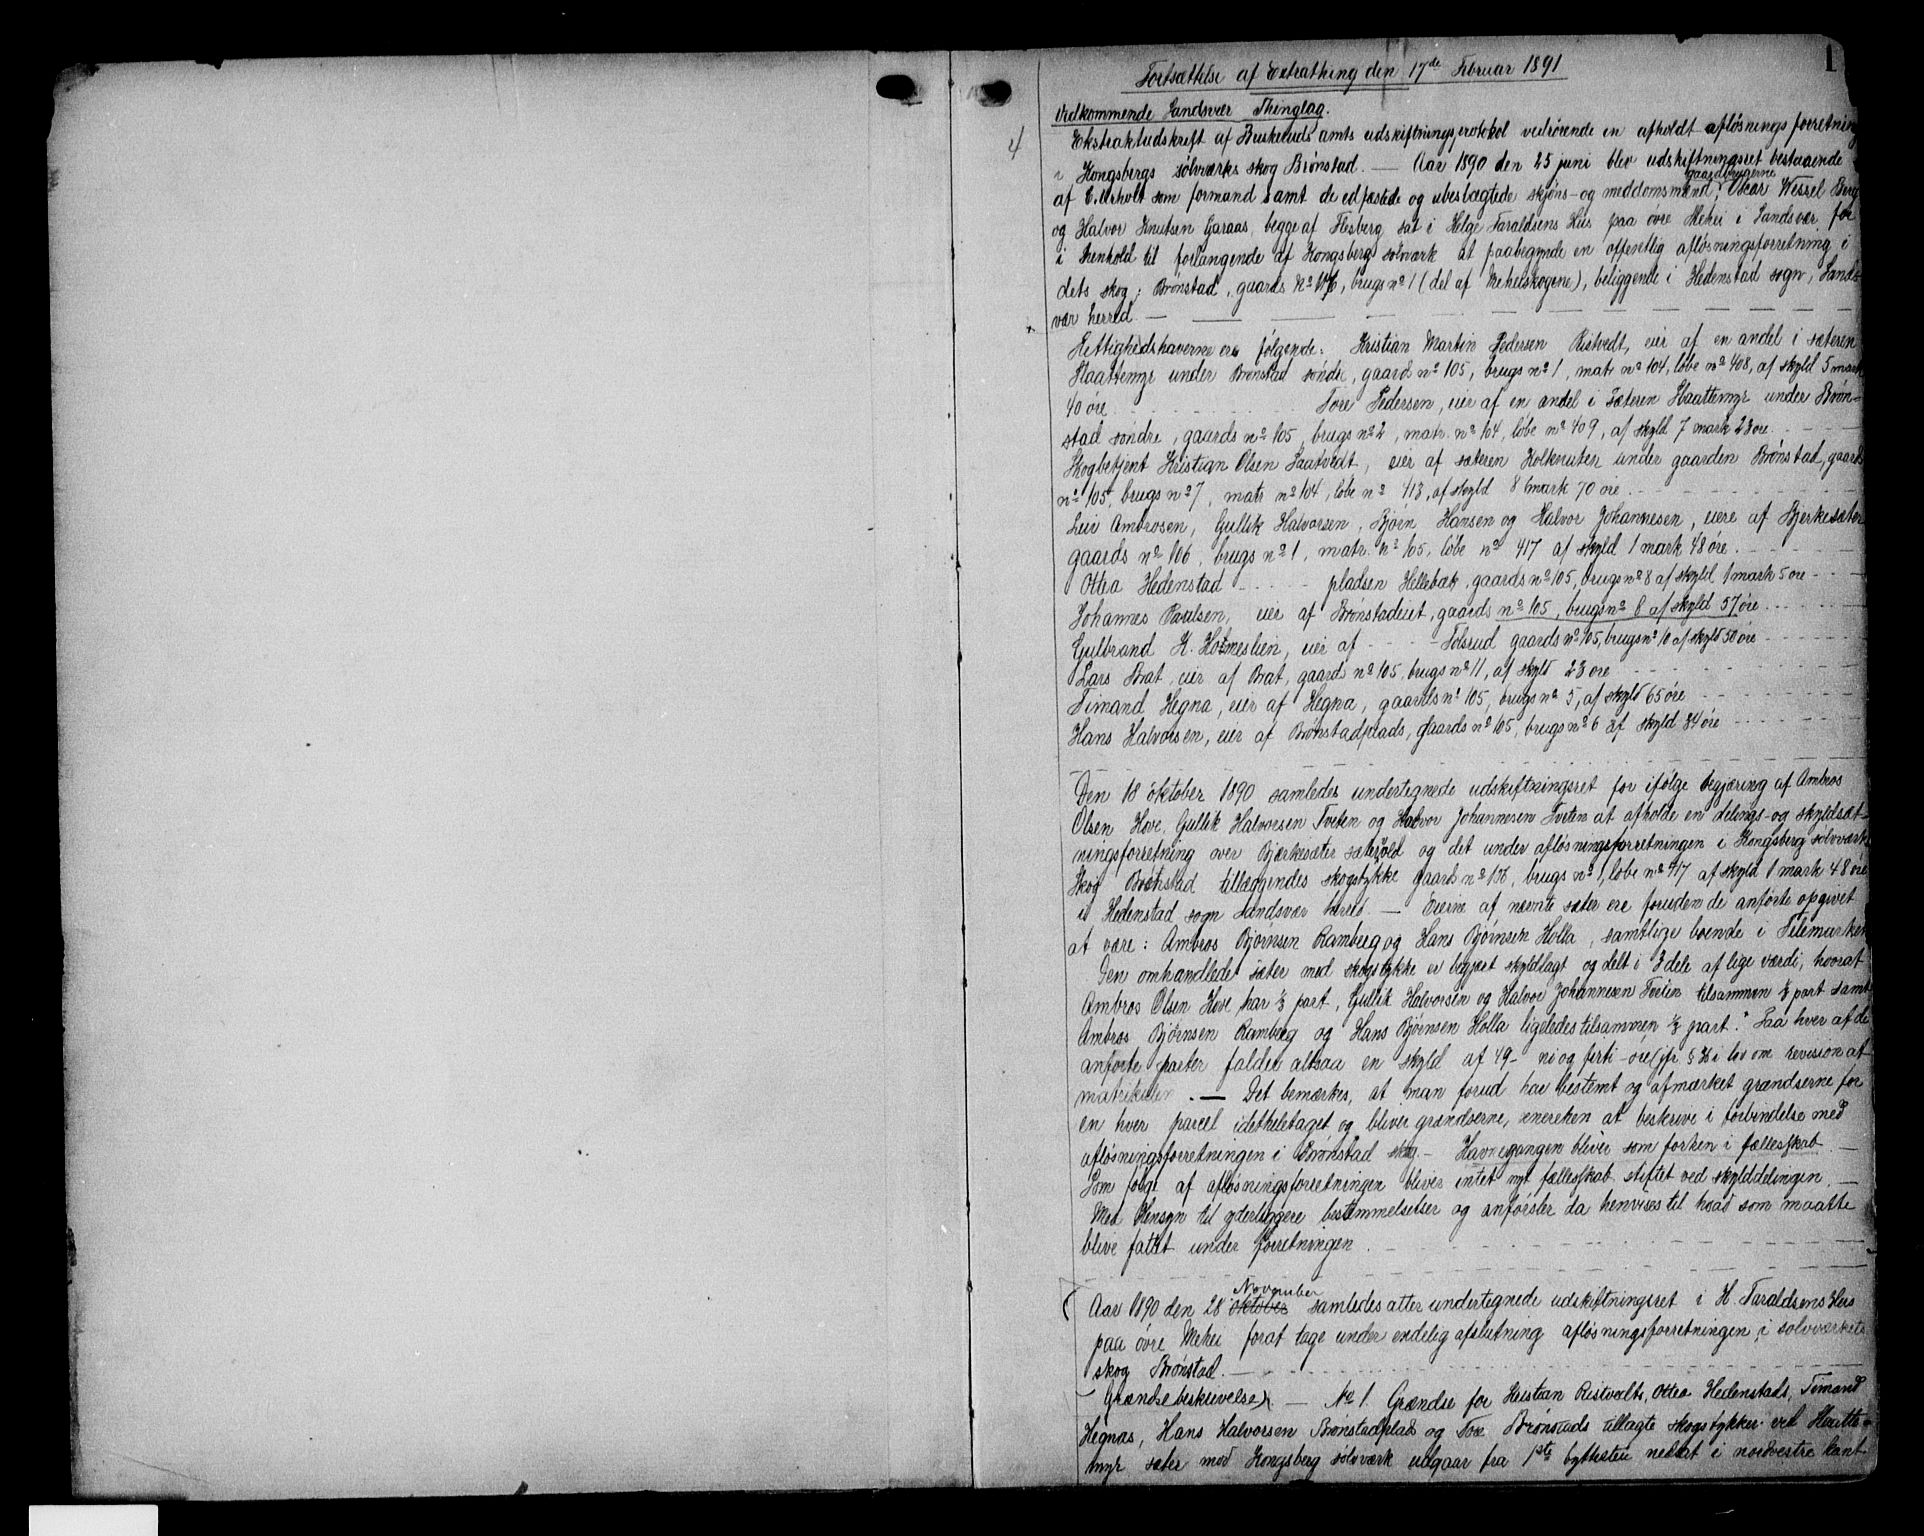 1
Fortsættelse af Extrathing den 17de Februar 1891
Vedkommende Sandsvær Thinglag.
4
Ekstraktudskrift af Buskeruds amts udskiftningsprotokol vedrørende en afholdt afløsnings forretning
i Kongsbergs sølvværks skog Brønstad. — Aar 1890 den 25 juni blev udskiftningsret bestaaende
gaardbrugerne
af E. Urholt som formand samt de edfæstede og ubeslægtede skjøns- og meddomsmænd, Oscar Wessel Berg
og Halvor Knutsen Garaas, begge af Flesberg, sat i Helge Taraldsens Hus paa øvre Mehei i Sandsvær for
i Henhold til forlangende af Kongsberg sølvværk at paabegynde en offentlig afløsningsforretning i
dets skog: Brønstad, gaards No 146, brugs no 1 (del af Meheiskogene), beliggende i Hedenstad sogn, Sands-
vær herred —
Rettighedshaverne ere følgende: Kristian Martin Pedersen Ristvedt, eier af en andel i sæteren
Haattemyr under Brønstad søndre, gaards no 105, brugs no 1, matr no 104, løbe no 408, af skyld 5 mark
40 øre Tore Pedersen, eier af en andel i Sæteren Haattemyr under Brøn-
stad søndre, gaards no 105, brugs no 2, matr. no 104, løbe no 409, af skyld 7 mark 23 øre
Skogbetjent Kristian Olsen Saatvedt, eier af sæteren Kolknuten under gaarden Brønstad, gaards
no 105, brugs no 7, matr no 104, løbe no 413, af skyld 8 mark 70 øre
Leiv Ambrosen, Gullik Halvorsen, Bjørn Hansen og Halvor Johannesen, eiere af Bjerkesæter
gaards no 106, brugs no 1, matr. no 105, løbe no 417 af skyld 1 mark 48 øre.
Ottea Hedenstad - - - pladsen Hellebæk, gaards no 105, brugs no 8 af skyld 1 mark 5 øre
Johannes Paulsen, eier af Brønstadeiet, gaards no 105, brugs no 8 af skyld 57 øre
Gulbrand H. Holmeslien, eier af - - - Tolsrud gaards no 105, brugs no 10 af skyld 50 øre
Lars Brat, eier af Brat, gaards no 105, brugs no 11, af skyld 23 øre
Timand Hegna, eier af Hegna, gaards no 105, brugs no 5, af skyld 65 øre
Hans Halvorsen, eier af Brønstadplads, gaards no 105, brugs no 6 af skyld 84 øre
Den 18 oktober 1890 samledes undertegnede udskiftningsret for ifølge begjæring af Ambros
Olsen Hove, Gullik Halvorsen Tveten og Halvor Johannesen Tveten at afholde en delings- og skyldsæt-
ningsforretning over Bjærkesæter sætervold og det under afløsningsforretningen i Kongsberg sølvværks
Skog Brønstad tillæggendes skogstykke gaards no 106, brugs no 1, løbe no 417 af skyld 1 mark 48 øre
i Hedenstad sogn Sandsvær herred — Eierne af nævnte sæter ere foruden de anførte opgivet
at være: Ambros Bjørnsen Ramberg og Hans Bjørnsen Holla, samtlige boende i Telemarken
Den omhandlede sæter med skogstykke er begjært skyldlagt og delt i 3 dele af lige værdi, hvorat
Ambros Olsen Hove har 1/3 part, Gullik Halvorsen og Halvor Johannesen Tveten tilsammen 1/3 part samt
Ambros Bjørnsen Ramberg og Hans Bjørnsen Holla ligeledes tilsammen 1/3 part. Paa hver af de
anførte parter falder altsaa en skyld af 49 - ni og førti - øre (jfr § 26 i lov om revision af
matrikulen. — Det bemærkes, at man forud har bestemt og afmærket grændserne for
en hver parcel idetheletaget og bliver grændserne, at beskrive i forbindelse med
afløsningsforretningen i Brønstad skog — Havnegangen bliver som før i fællesskab. —
Som følge af afløsningsforretningen bliver intet nyt fælleskab stiftet ved skylddelingen. —
Med Hensyn til yderligere bestemmelser og anførsler da henvises til hvad som maatte
blive fattet under forretningen
November
Aar 1890 den 28 oktober samledes atter undertegnede udskiftningsret i H. Taraldsens Hus
paa øvre Mehei forat tage under endelig afslutning afløsningsforretningen i sølvværkets
skog Brønstad.
Grændsebeskrivelse). — No 1. Grændse for Kristian Ristvedts, Ottea Hedenstads, Timand
Hegnas, Hans Halvorsen Brønstadplads og Tore Brønstads tillagte skogstykker ved Haatte-
myr sæter mod Kongsberg sølvværk udgaar fra 1ste byttesten nedsat i nordvestre kant